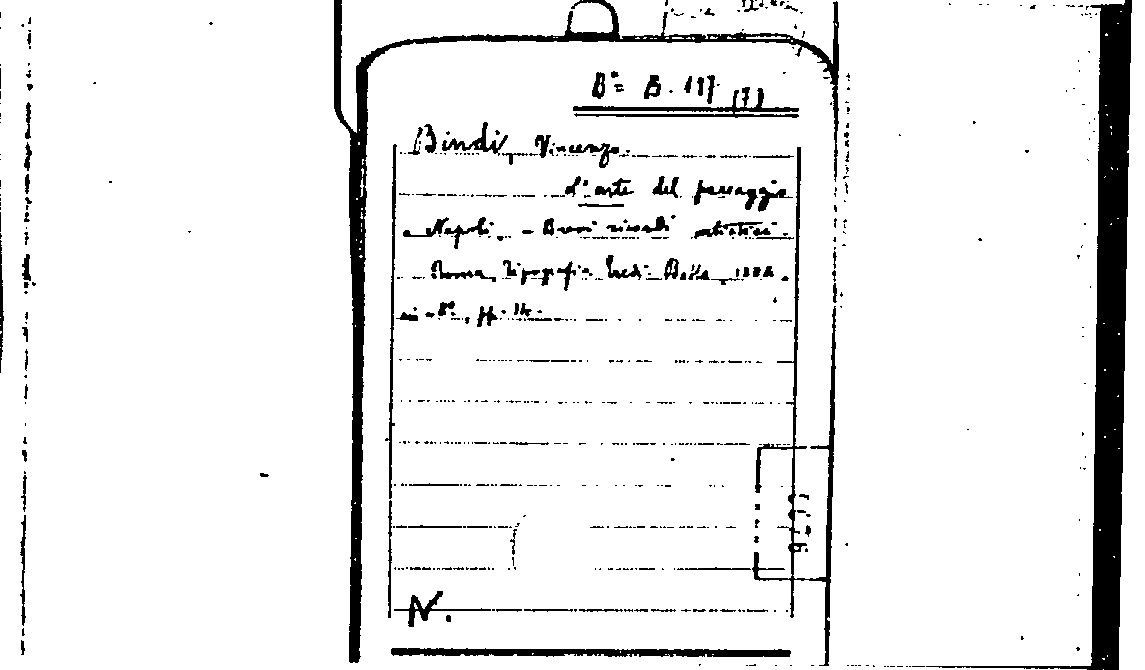 B° = B. 197 (7)
Bindi, Vincenzo.
L'arte del paesaggio
a Napoli. - Brevi ricordi artistici.
Roma, Tipografia Eredi Botta, 1882.
in-8°, pp. 14.
N.